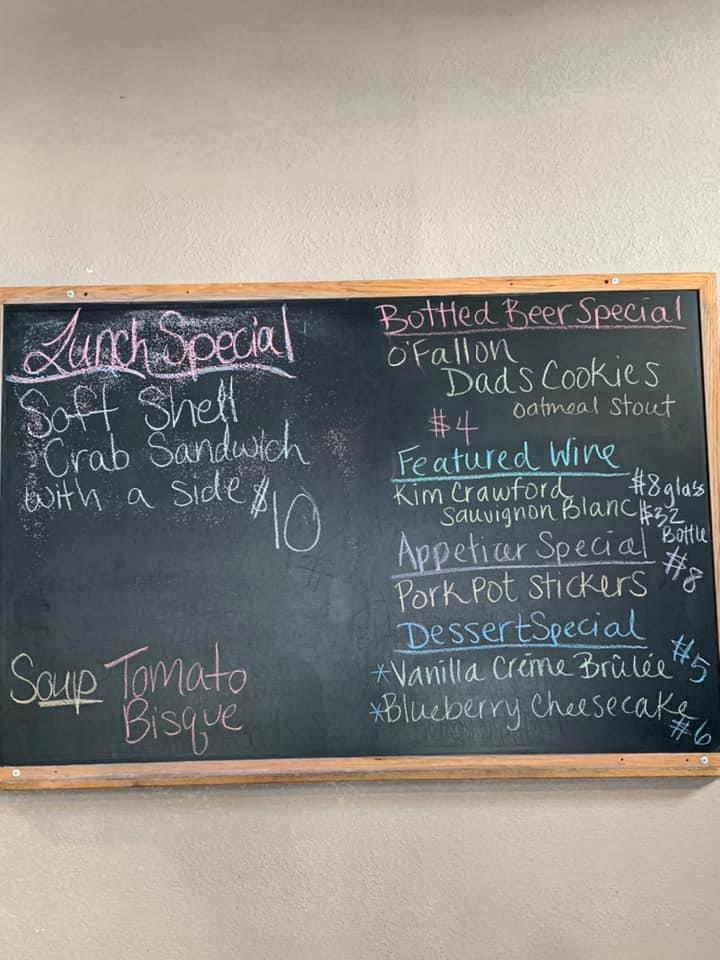 Lunch Special
Soft Shell
Crab Sandwich
with a side $10
Soup Tomato
Bisque
Bottled Beer Special
O'Fallon
Dads Cookies
Oatmeal Stout
$4
Featured Wine
Kim Crawford $8 glass
Sauvignon Blanc $32
Bottle
Appetizer Special $8
Pork Pot Stickers
Dessert Special
*Vanilla Créme Brûlée $5
*Blueberry Cheesecake
$6